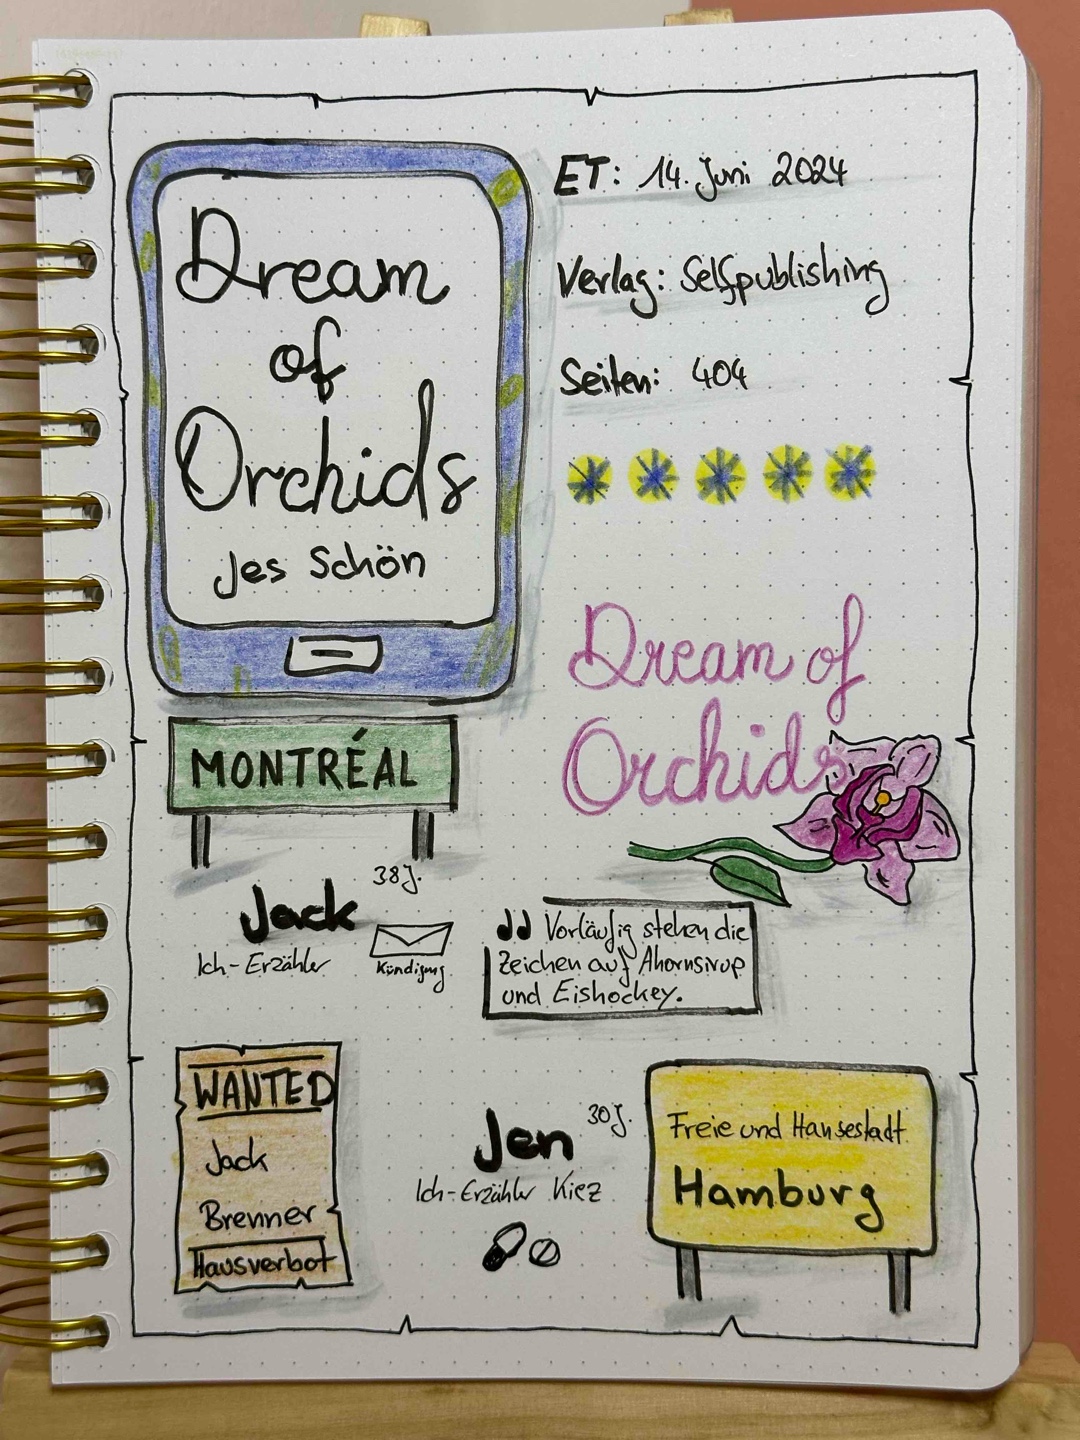 Dream
of
Orchids
Jes Schön
ET: 14. Juni 2024
Verlag: Selfpublishing
Seiten: 404
Dream of
Orchids
MONTRÉAL
38J.
Jack
Ich-Erzähler
Kündigung
Vorläufig stehen die
Zeichen auf Ahornsirup
und Eishockey.
WANTED
Jack
Brenner
Hausverbot
Jen
30J.
Ich-Erzähler Kiez
Freie und Hansestadt
Hamburg